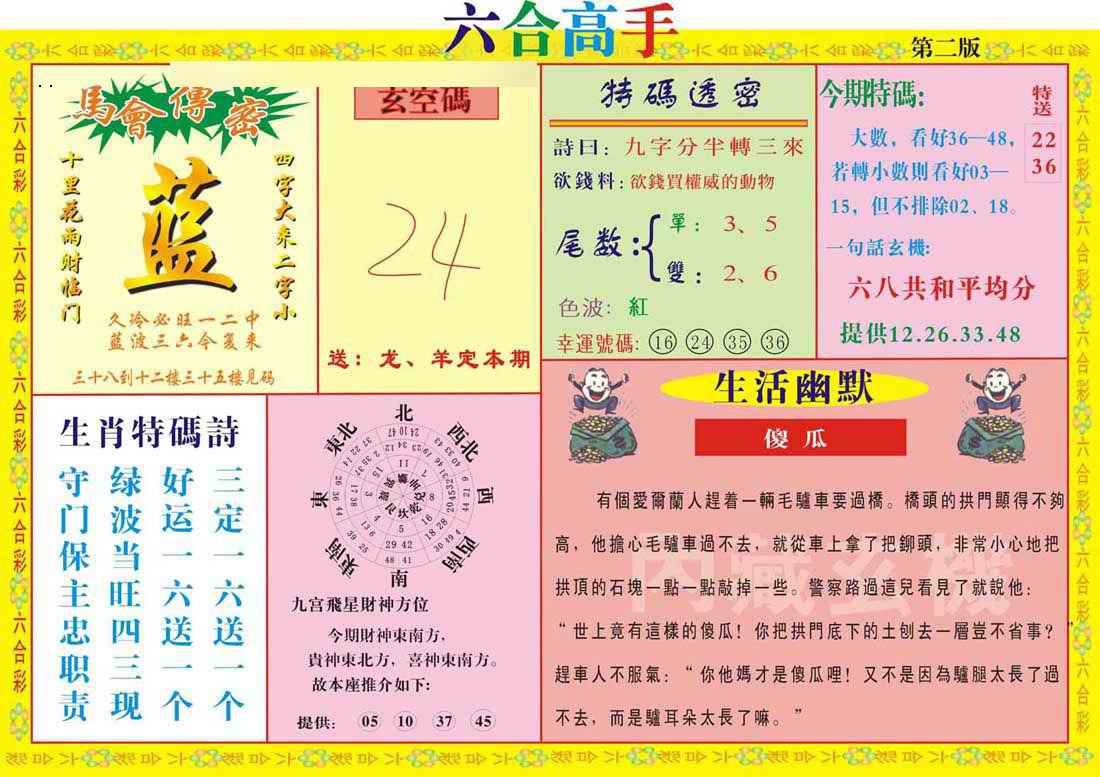 六合高手
第二版
馬會傳密
四字大来二字小
藍
十里花雨财临门
久冷必旺一二中
蓝波三六今复来
三十八到十二楼三十五楼见码
玄空碼
24
送：龙、羊定本期
特碼透密
詩曰：九字分半轉三來
欲錢料：欲錢買權威的動物
尾数：
單：3、5
雙：2、6
色波：紅
幸運號碼：16 24 35 36
今期特碼：
大數，看好36—48，
若轉小數則看好03—
15，但不排除02、18。
特送
22
36
一句話玄機：
六八共和平均分
提供12.26.33.48
生肖特碼詩
三定一六送一个
好运一六送一个
绿波当旺四三现
守门保主忠职责
北
西北
西
西南
南
東南
東
東北
九宫飛星財神方位
今期財神東南方，
貴神東北方，喜神東南方。
故本座推介如下：
提供：05 10 37 45
生活幽默
傻瓜
有個愛爾蘭人趕着一輛毛驢車要過橋。橋頭的拱門顯得不夠
高，他擔心毛驢車過不去，就從車上拿了把鉚頭，非常小心地把
拱頂的石塊一點一點敲掉一些。警察路過這兒看見了就説他：
“世上竟有這樣的傻瓜！你把拱門底下的土刨去一層豈不省事？”
趕車人不服氣：“你他媽才是傻瓜哩！又不是因為驢腿太長了過
不去，而是驢耳朵太長了嘛。”
内藏玄機
六合彩